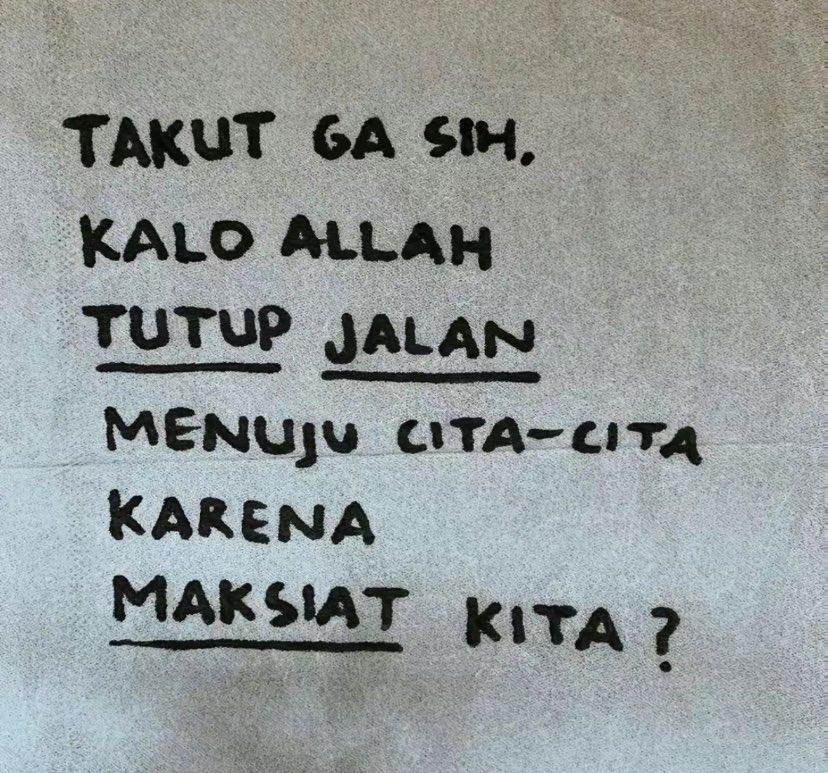 TAKUT GA SIH.
KALO ALLAH
TUTUP JALAN
MENUJU CITA-CITA
KARENA
MAKSIAT KITA?